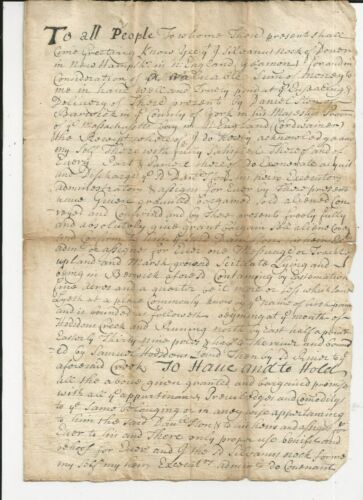 To all People To whome These presents shall
Come Greeting Know Yee yt I Silvanus Nock of Dover
in New Hampsr in N England yeoman for and in
Consideration of a valuable Sum of money to
me in hand well and Truly paid at ye Ensealing &
Delivery of These presents by Daniel
Barwick in ye County of york in his Majesties Province
of ye Massachusetts Bay in N England Cordwainer
the Receipt whereof I do hereby acknowledge and
my Self Therewith fully Satisfied and
Every Part & parcel thereof do Exonerate acquit
and Discharge ye sd Daniel his heirs Executors
administrators & assigns for Ever by These presents
have Given granted bargained sold aliened Con
veyed and Confirmed and by These presents freely fully
and absolutely give grant bargain sell aliene Con
vey
and assigns for Ever one Messuage or Tract of
upland and Marsh ground Scittuate Lying and
being in Berwick aforesd Containing by Estimation
nine acres and a quarter be it more or less which land
Lyeth at a place Commonly known by ye name of
and is bounded as followeth begining at ye mouth of
Hoddom Creek and Runing north by East half a point
Easterly Thirty nine poles to ye River and bound
ed by Samuel Hoddoms Land Then by sd River to ye
aforesaid Creek To Have and to Hold
all the above given granted and bargained premises
with all ye appurtinances Priviledges and Comoditys
to ye Same belonging or in any wise appertaining
to him the said to his heirs and assigns for
Ever to him and Their only proper use benefit and
behoof for Ever and I the sd Silvanus Nock for me
my Self my heirs Executrs adminrs do Covenant